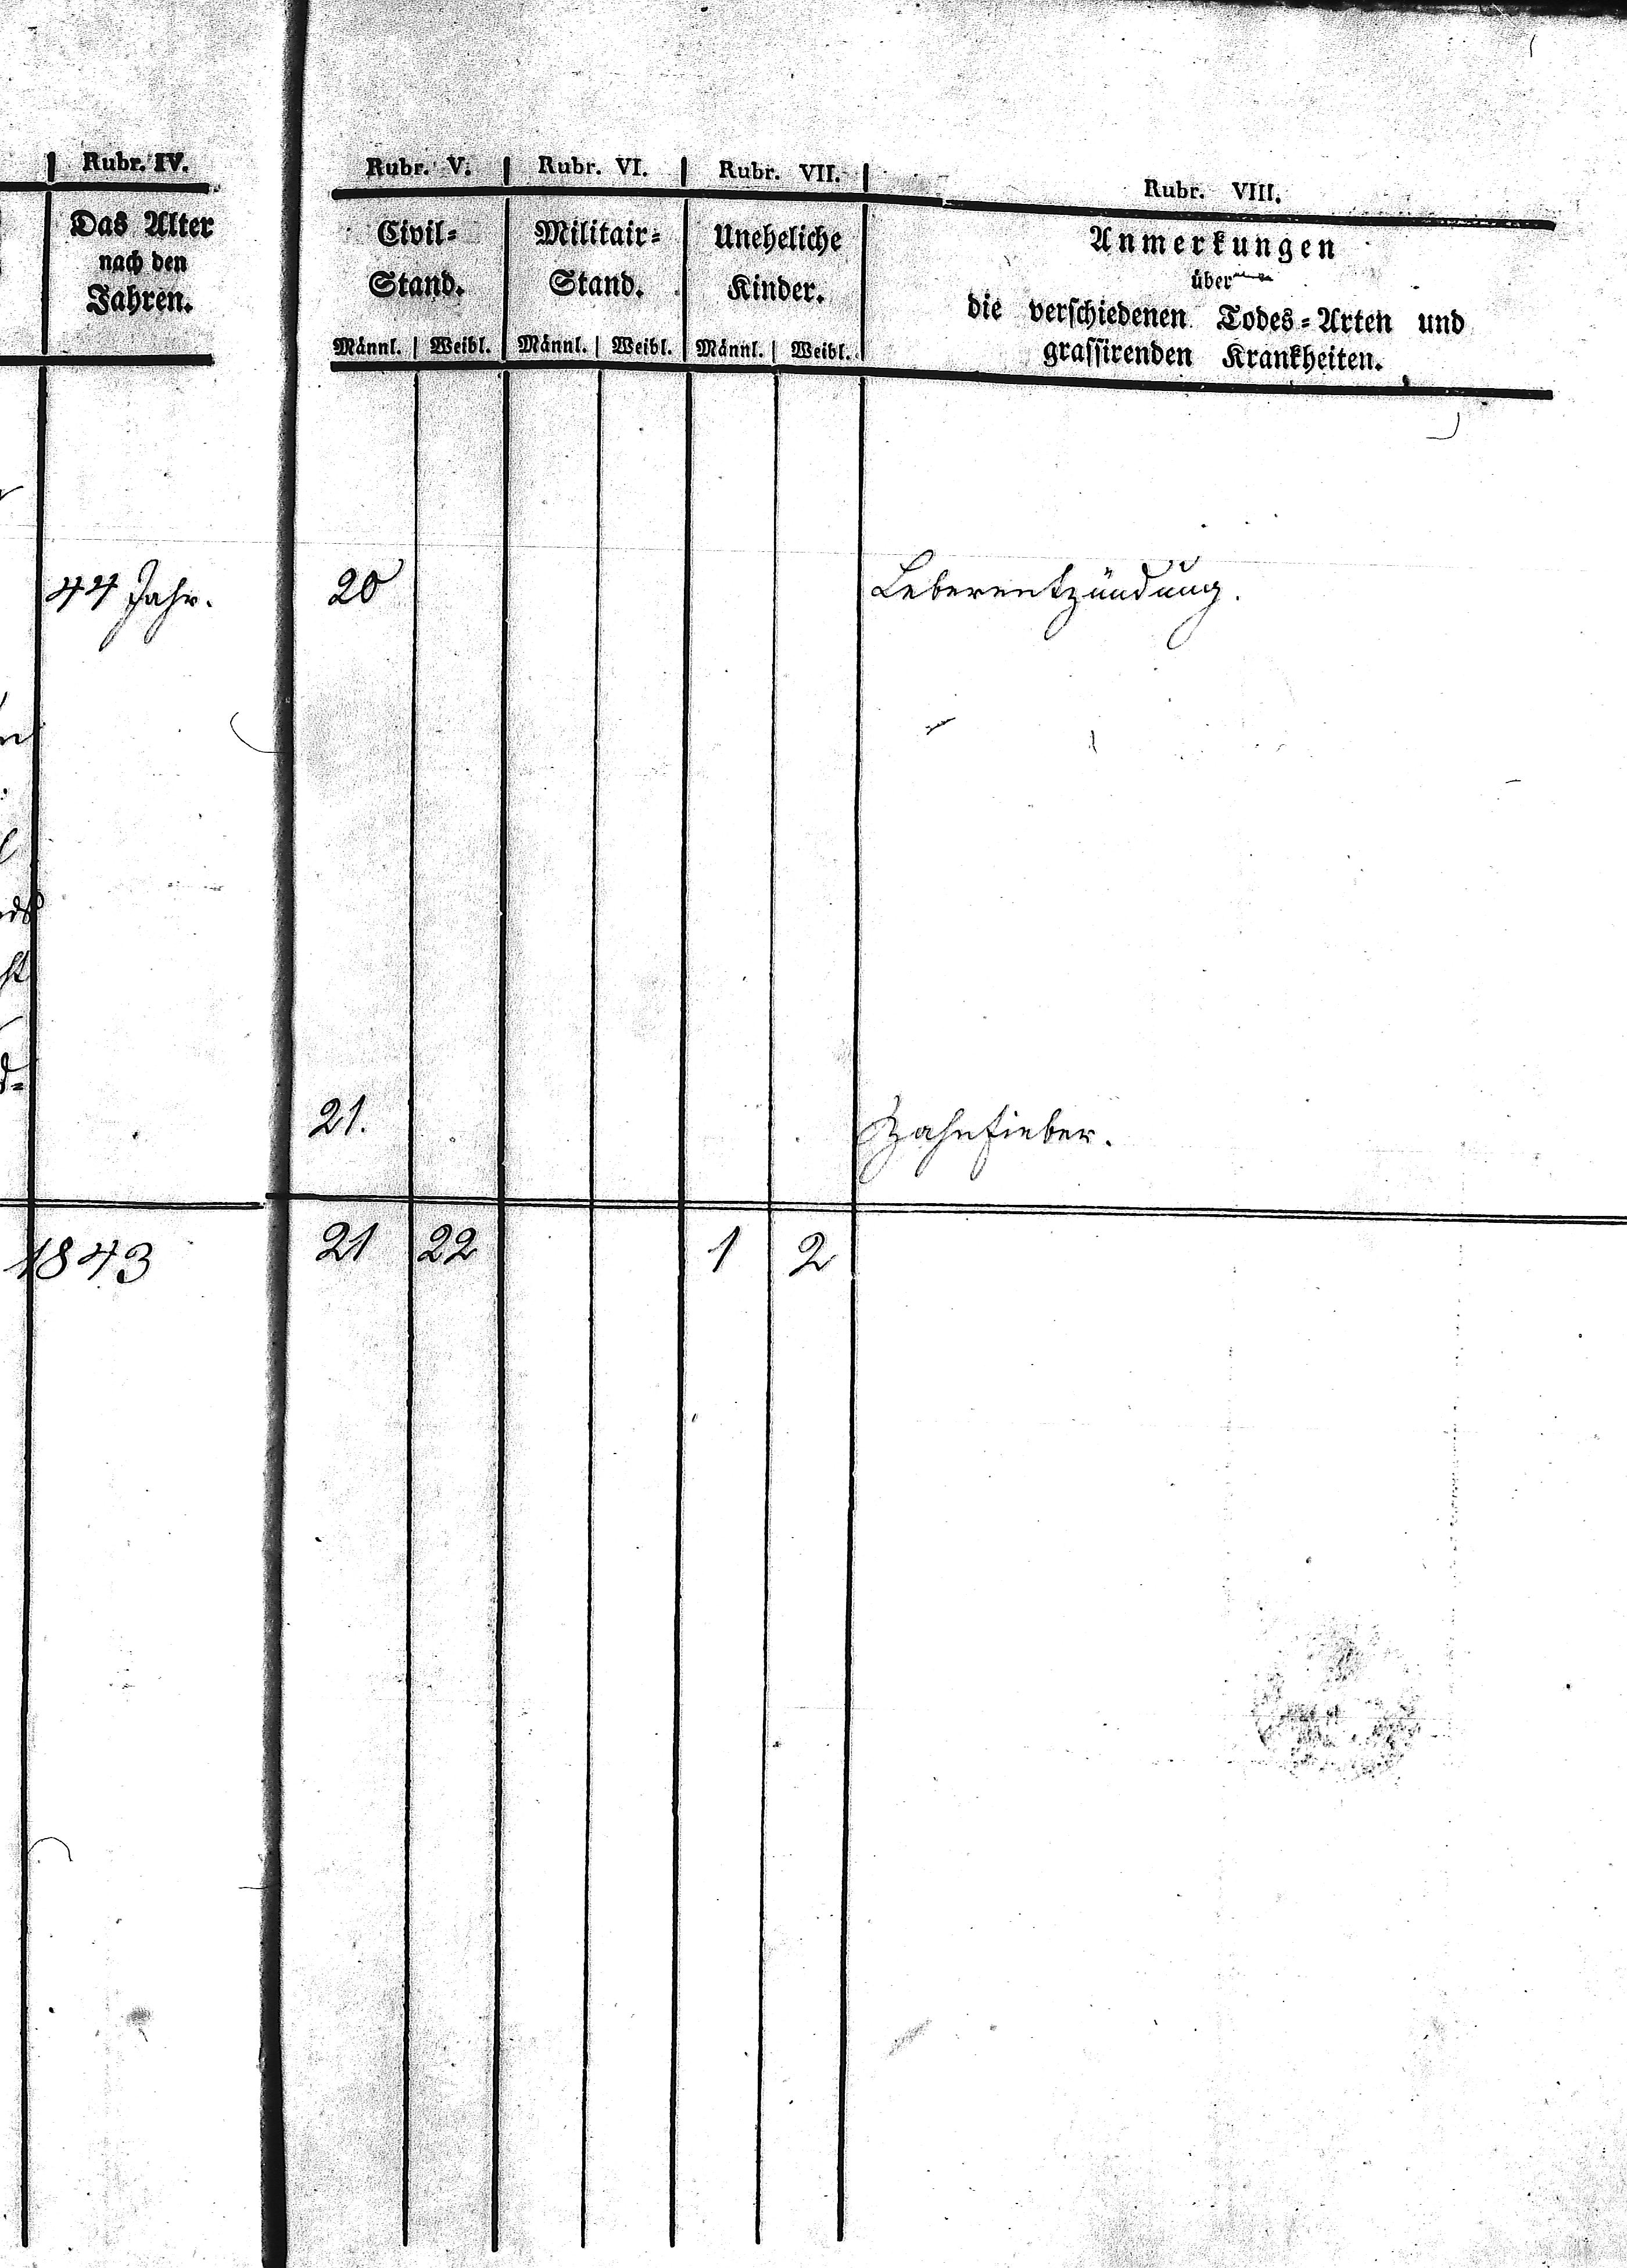 Rubr. IV.
Das Alter
nach den
Jahren.
Rubr. V. Rubr. VI. Rubr. VII. Rubr. VIII.
Civil- Militair- Uneheliche Anmerkungen
Stand. Stand. Kinder. über
die verschiedenen Todes-Arten und
Männl. Weibl. Männl. Weibl. Männl. Weibl. grassirenden Krankheiten.
44 Jahr. 20 Leberentzündung.
21. Zahnfieber.
1843 21 22 1 2